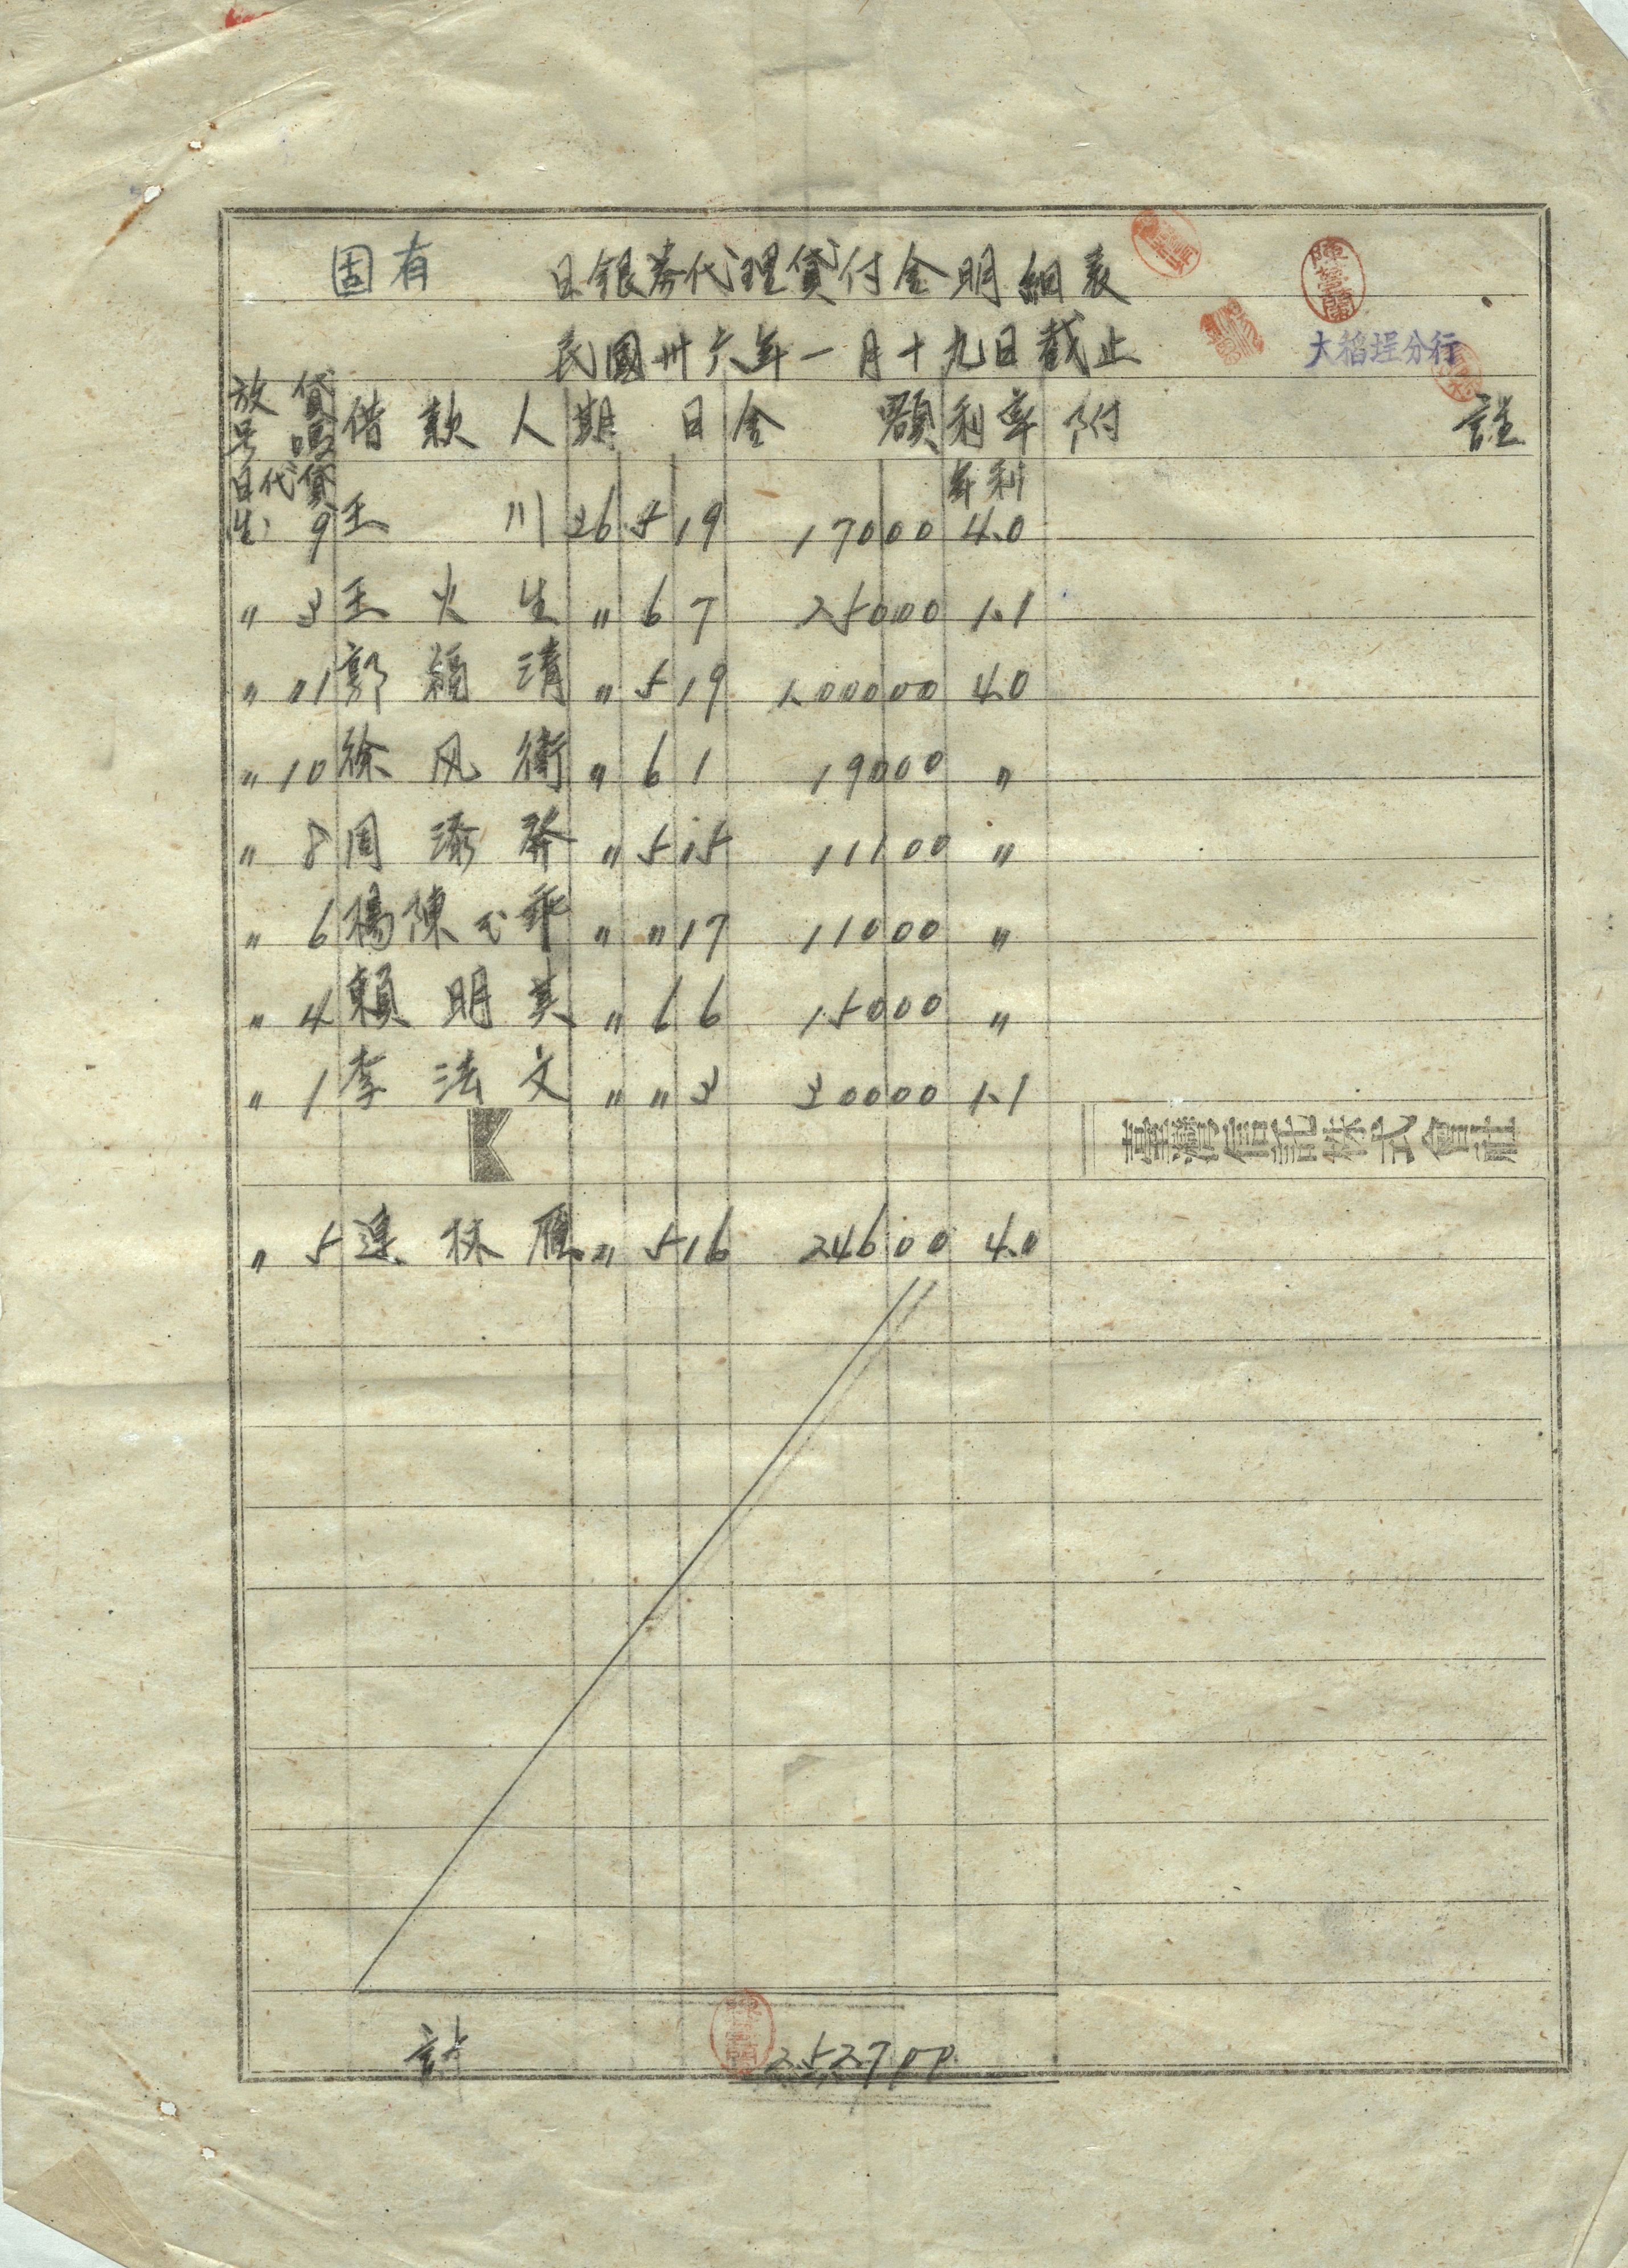 固有 日銀券代理貸付金明細表
陳
民國卅六年一月十九日截止 大稻埕分行
放貸
号 借款人 期日 金額 利率 附註
日代貸 年利
生 9 王川 36 5 19 17000 4.0
〃 3 王火生 〃 6 7 25000 1.1
〃 11 郭福清 〃 5 19 100000 4.0
〃 10 徐风衛 〃 6 1 19000 〃
〃 8 周添 〃 5 15 11100 〃
〃 6 楊陳氏乖 〃 〃 17 11000 〃
〃 4 賴明其 〃 6 6 15000 〃
〃 1 李法文 〃 〃 3 30000 1.1
臺灣信託株式會社
〃 5 連林雁 〃 5 16 24600 4.0
計 252700